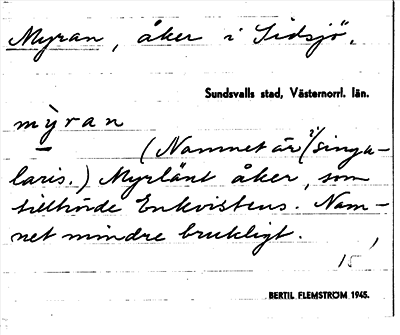 Myran, åker i Sidsjö,
Sundsvalls stad, Västernorrl. län.
mỳran
(Namnet är i singu-
laris.) Myrlänt åker, som
tillhörde Enkvistens. Nam-
net mindre brukligt.
15
BERTIL FLEMSTRÖM 1945.